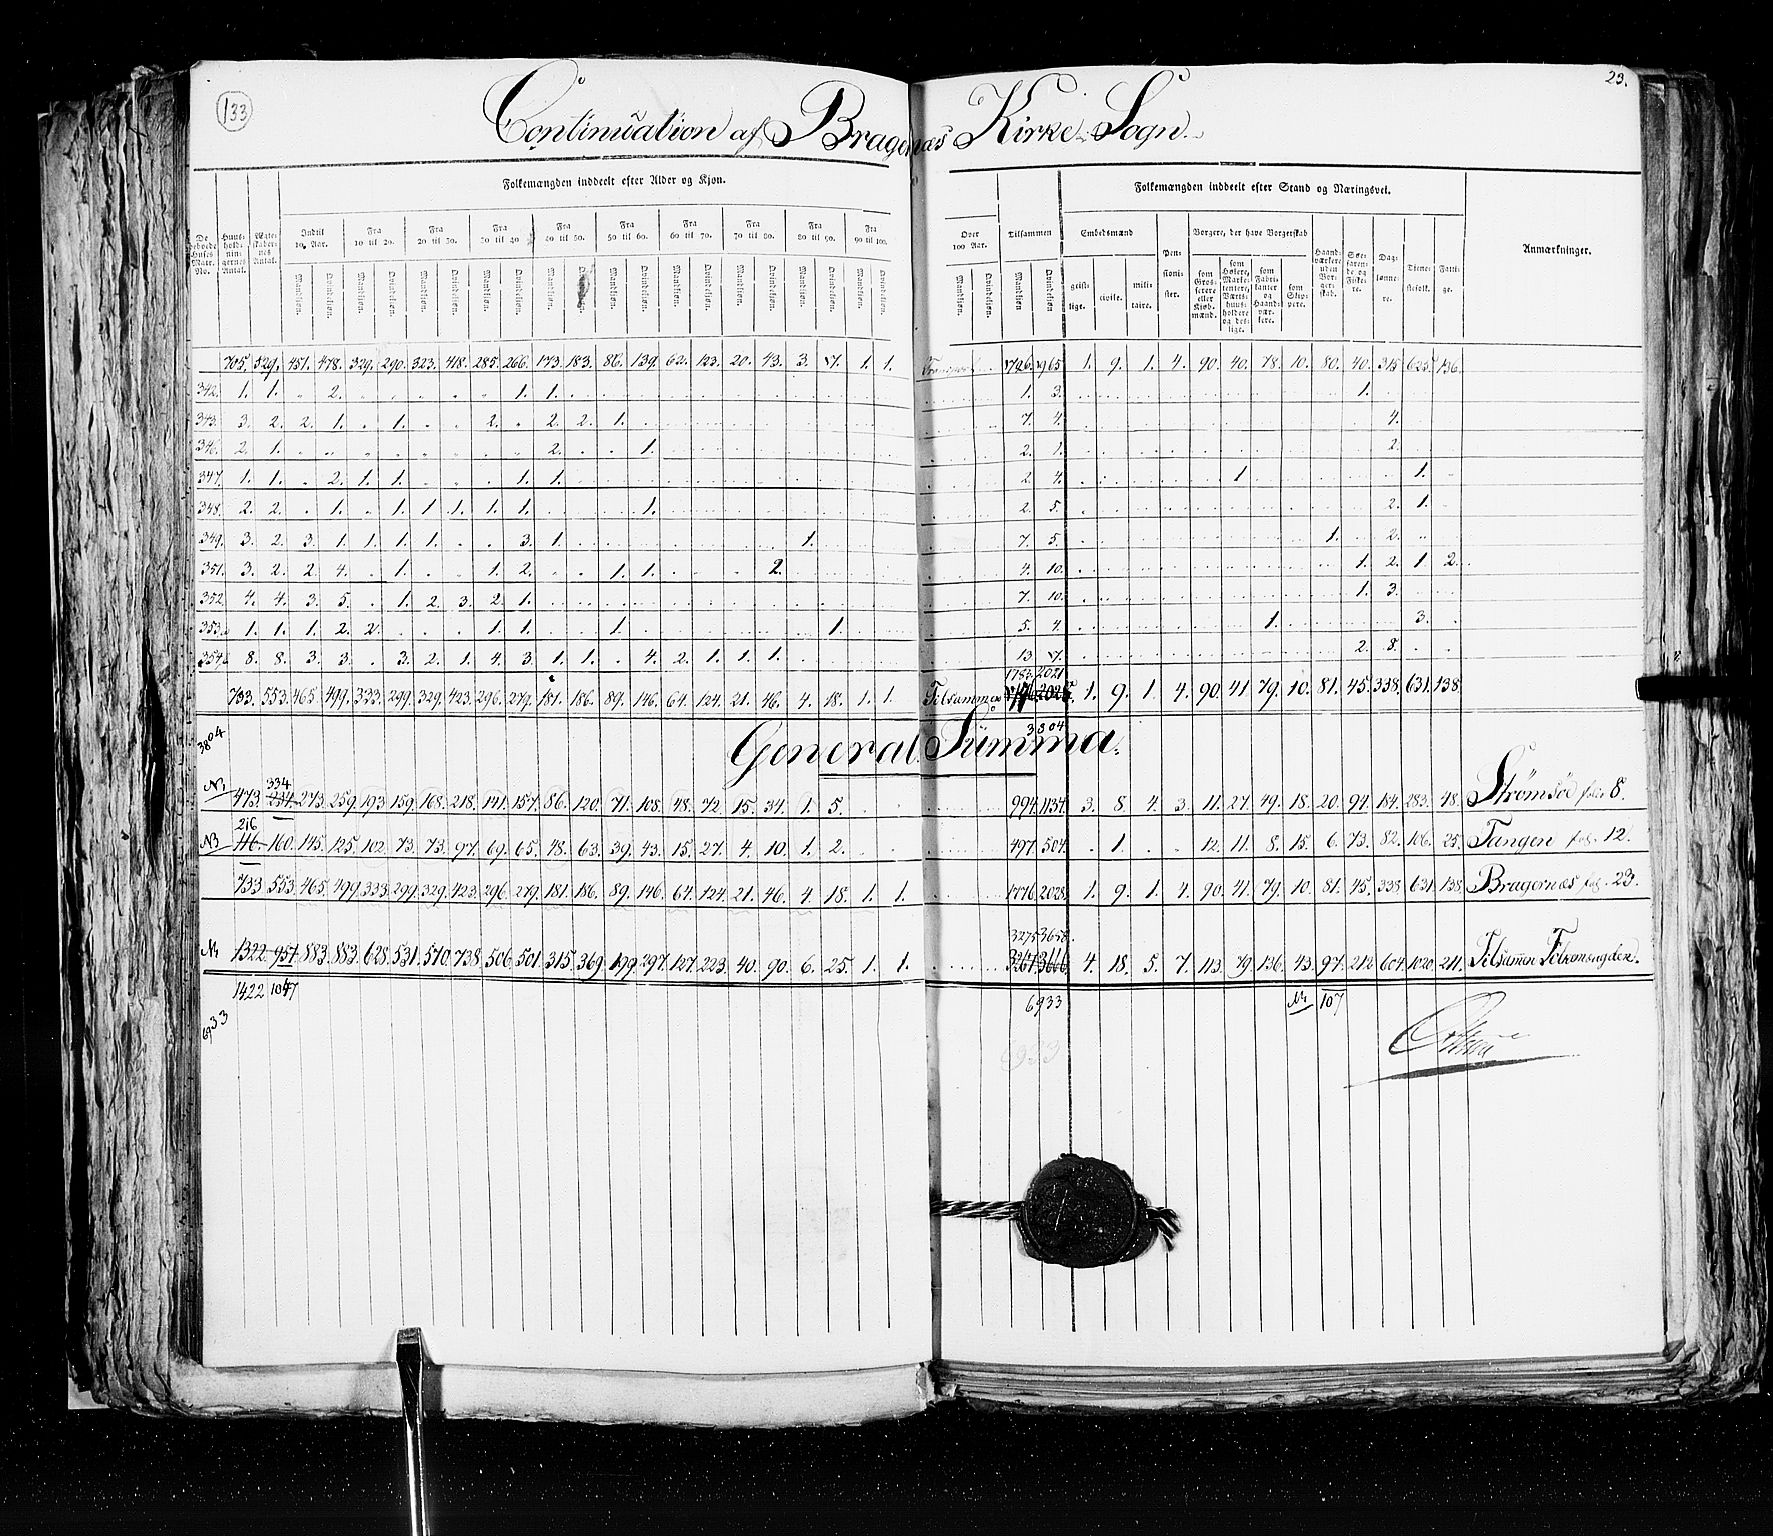 133
23.
Continuation af Bragernæs Kirke-Sogn.
Folkemængden inddeelt efter Alder og Kjøn.
Folkemængden inddeelt efter Stand og Næringsvei.
De beboede Huses Matr. No. | Huus-hold-nin-gernes Antal. | Ægte-skaber-nes Antal. | Indtil 10 Aar. | Fra 10 til 20. | Fra 20 til 30. | Fra 30 til 40. | Fra 40 til 50. | Fra 50 til 60. | Fra 60 til 70. | Fra 70 til 80. | Fra 80 til 90. | Fra 90 til 100. | Over 100 Aar. | Tilsammen | Embedsmænd | Pen-sioni-ster. | Borgere, der have Borgerskab | Haand-værkere uden Bor-ger-skab. | Søe-faren-de og Fiske-re. | Dag-lønne-re. | Tiene-stefolk. | Fatti-ge. | Anmærkninger.
Mandkjøn. Qvindekjøn.
geist-lige. | civile. | mili-taire. | som Gros-serere eller Kjøb-mænd. | som Høkere, Marke-tentere, Værts-huus-holdere og des-lige. | som Fabri-kanter og Haand-vær-kere. | som Skip-pere.
705. 529. 451. 478. 329. 290. 323. 418. 285. 266. 173. 183. 86. 139. 62. 123. 20. 43. 3. 17. 1. 1. 1726. 1965 1. 9. 1. 4. 90. 40. 78. 10. 80. 40. 315 625. 136.
342. 1. 1. 2. 1. 1. 1. 3. 1.
343. 3. 2. 2. 1. 1. 2. 2. 2. 1. 7. 4. 4.
346. 2. 1. 2. 1. 2. 1. 2.
347. 1. 1. 2. 1. 1. 1. 1. 2. 4. 1 1.
348. 2. 2. 1. 1. 1. 1. 1. 1. 1. 2. 5. 2. 1.
349. 3. 2. 3. 1. 1. 1. 1. 3. 1. 1. 7. 5. 1. 2.
351. 3. 2. 2. 4. 1. 1. 2. 1. 1. 2. 4. 10. 1. 2. 1 2.
352. 4. 4. 3. 5. 1. 2. 3. 2. 1. 7. 10. 1. 3.
353. 1. 1. 1. 2. 2. 1. 1. 1. 1. 5. 4. 1. 3.
354. 8. 8. 3. 3. 3. 2. 1. 4. 3. 1. 1. 4. 2. 1. 1. 1. 13 17. 2. 8.
1783. 2021
733. 553. 465. 499. 333. 299. 329. 423. 296. 279. 181. 186. 89. 146. 64. 124. 21. 46. 4. 18. 1. 1. Tilsammen 1. 9. 1. 4. 90 41. 79. 10. 81. 45. 338. 631. 138.
3804
3804
General Summa.
334
473. 234. 273. 259. 193 159. 168. 218. 141. 157. 86. 120. 71. 108. 48. 72. 15. 34. 1. 5. 994. 1134. 3. 8. 4. 3. 11. 27. 49. 18. 20. 94. 184. 283. 48. Strømsöe fol: 8.
216
NB 116. 160. 145. 125. 102. 73. 73. 97. 69. 65. 48. 63. 39. 43. 15. 27. 4. 10. 1. 2. 497. 504. 1. 12. 11. 8. 15. 6. 73. 82. 106. 25. Tangen fol. 12.
733 553. 465. 499. 333. 299. 329. 423. 296. 279. 181. 186. 89. 146. 64. 124. 21. 46. 4. 18. 1. 1. 1776. 2028. 1. 9. 1. 4. 90. 41. 79. 10. 81. 45. 338. 631. 138. Bragernæs fol. 23.
3275 3658.
1322. 957. 883. 883. 628. 531. 570. 738. 506. 501. 315. 369. 199. 297. 127. 223. 40. 90. 6. 25. 1. 1. 3267. 3666. 4. 18. 5. 7. 113. 79. 136. 43. 97. 212. 604. 1020. 211. Tilsamen Folkemængden.
1422 1047
6933
107
6933
6933